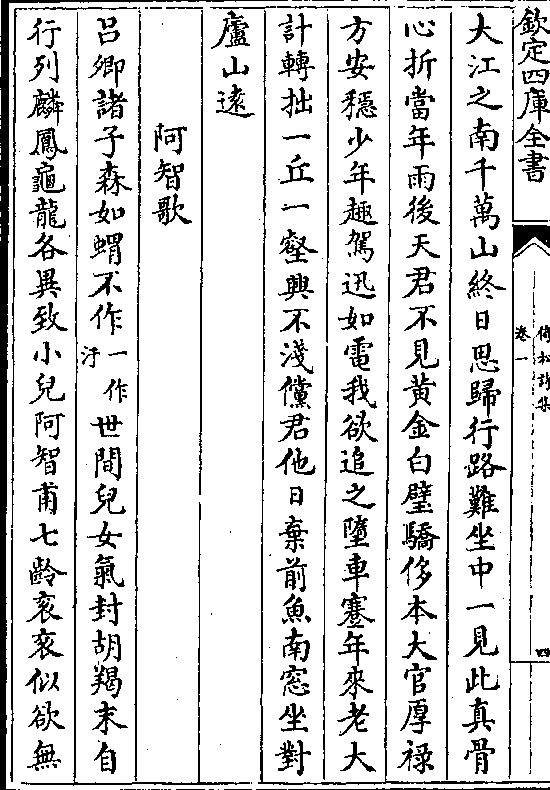 欽定四庫全書
倚松詩集
卷一
四
大江之南千萬山終日思歸行路難坐中一見此真骨
心折當年雨後天君不見黃金白璧驕侈本大官厚祿
方安穩少年趣駕迅如電我欲追之墮車蹇年來老大
計轉拙一丘一壑興不淺儻君他日棄前魚南窓坐對
廬山遠
阿智歌
呂卿諸子森如蝟不作一作汙世間兒女氣封胡羯末自
行列麟鳳龜龍各異致小兒阿智甫七齡衮衮似欲無